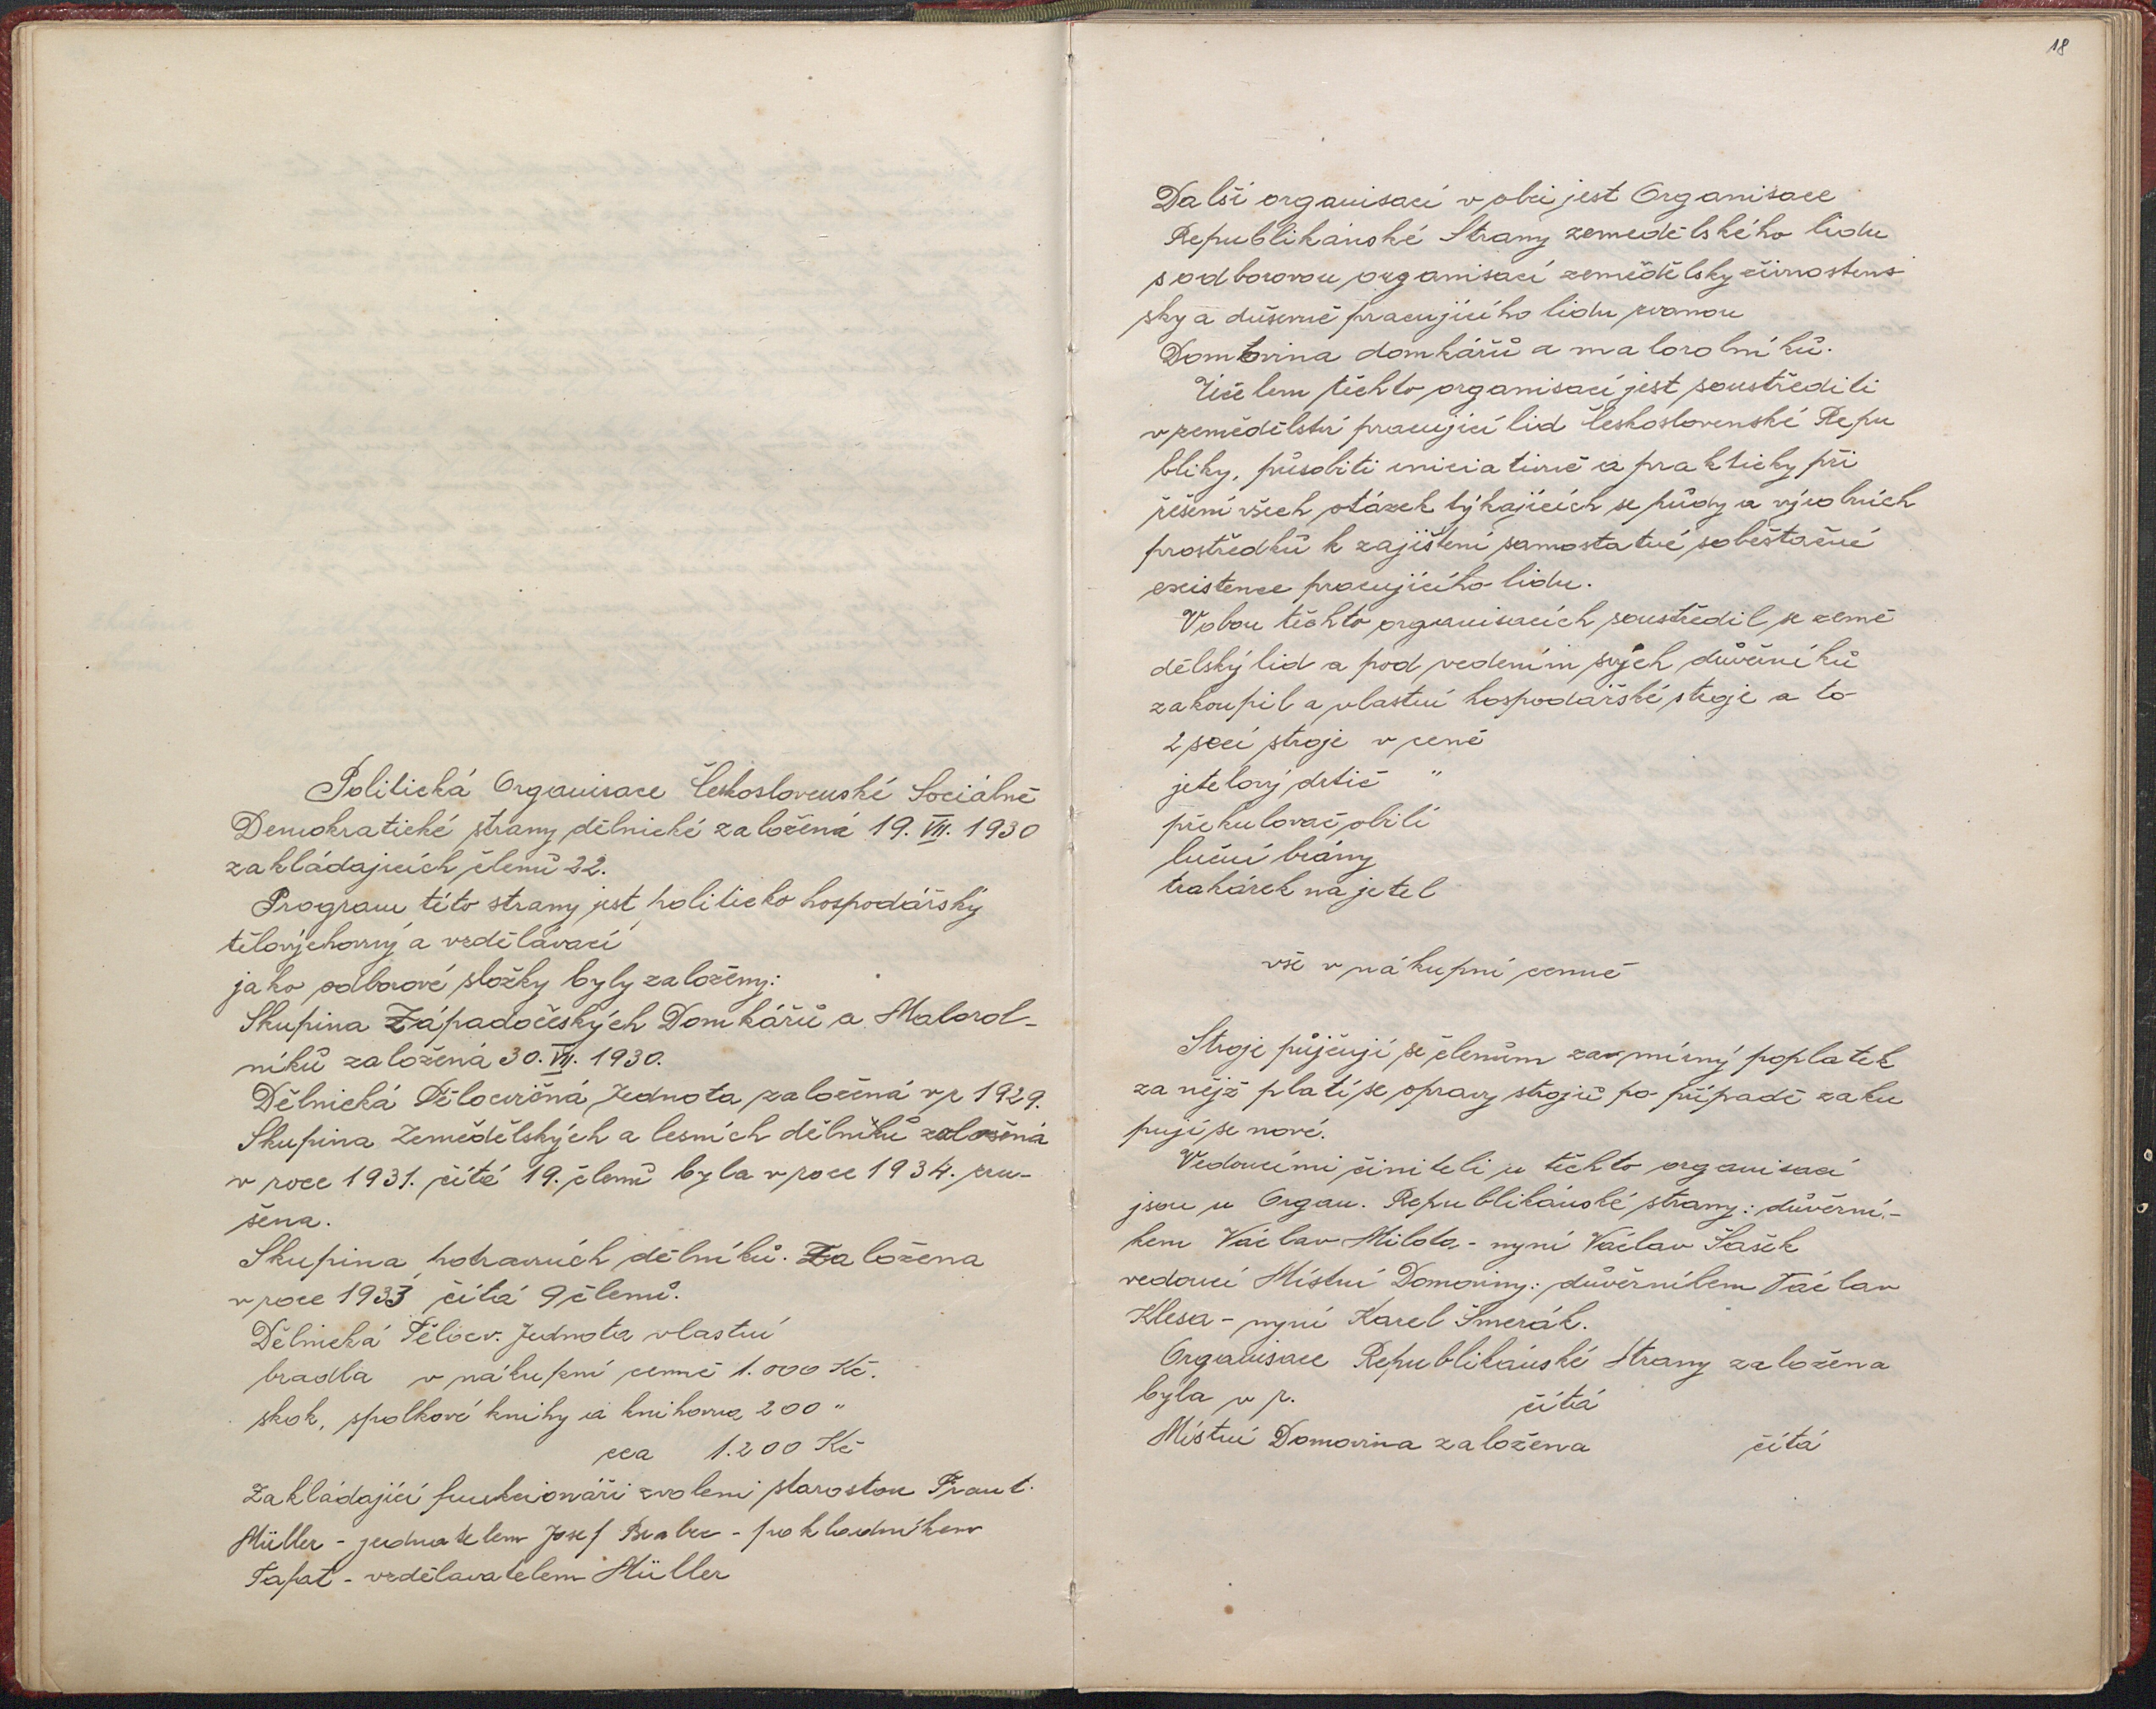 Politická Organisace Československé Sociálně
Demokratické strany dělnické založená 19. VII. 1930
zakládajících členů 22.
Program této strany jest politicko hospodářský
tělovýchovný a vzdělávací
jako odborové složky byly založeny:
Skupina Západočeských Domkářů a Malorol-
níků založená 30. VII. 1930.
Dělnická Tělocvičná Jednota založená v r 1929.
Skupina Zemědělských a lesních dělníků založená
v roce 1931. čítá 19. členů byla v roce 1934. zru-
šena.
Skupina potravních dělníků. Založena
v roce 1933 čítá 9 členů.
Dělnická Těločv. Jednota vlastní
bradla v nákupní cenně 1.000 Kč.
skok, spolkové knihy a knihovna 200 "
cca 1.200 Kč
Zakládající funkcionáři zvoleni starostou Frant.
Müller - jednatelem Josef Brabec - pokladníkem
Tafat - vzdělavatelem Müller
18
Další organisací v obci jest Organisace
Republikánské Strany zemědělského lidu
s odborovou organisací zemědělsky živnostens
sky a duševně pracujícího lidu zvanou
Domovina domkářů a malorolníků.
Účelem těchto organisací jest soustřediti
v zemědělství pracující lid Československé Repu
bliky, působiti iniciativně a prakticky při
řešení všech otázek týkajících se půdy a výrobních
prostředků k zajištení samostatné soběstačné
existence pracujícího lidu.
V obou těchto organisacích soustředil se země
dělský lid a pod vedením svých důvěrníků
zakoupil a vlastní hospodářské stroje a to
2 secí stroje v ceně
jetelový drtič "
překulovač obilí
luční brány
trakárek na jetel
vše v nákupní cenně
Stroje půjčují se členům za mírný poplatek
za nějž platí se opravy strojů po případě zaku
pují se nové.
Vedoucími činiteli u těchto organisací
jsou u Organ. Republikánské strany: důvěrní-
kem Václav Milota - nyní Václav Šašek
vedoucí Místní Domoviny: důvěrníkem Václav
Klesa - nyní Karel Šmerák.
Organisace Republikánské Strany založena
byla v r. čítá
Místní Domovina založena čítá